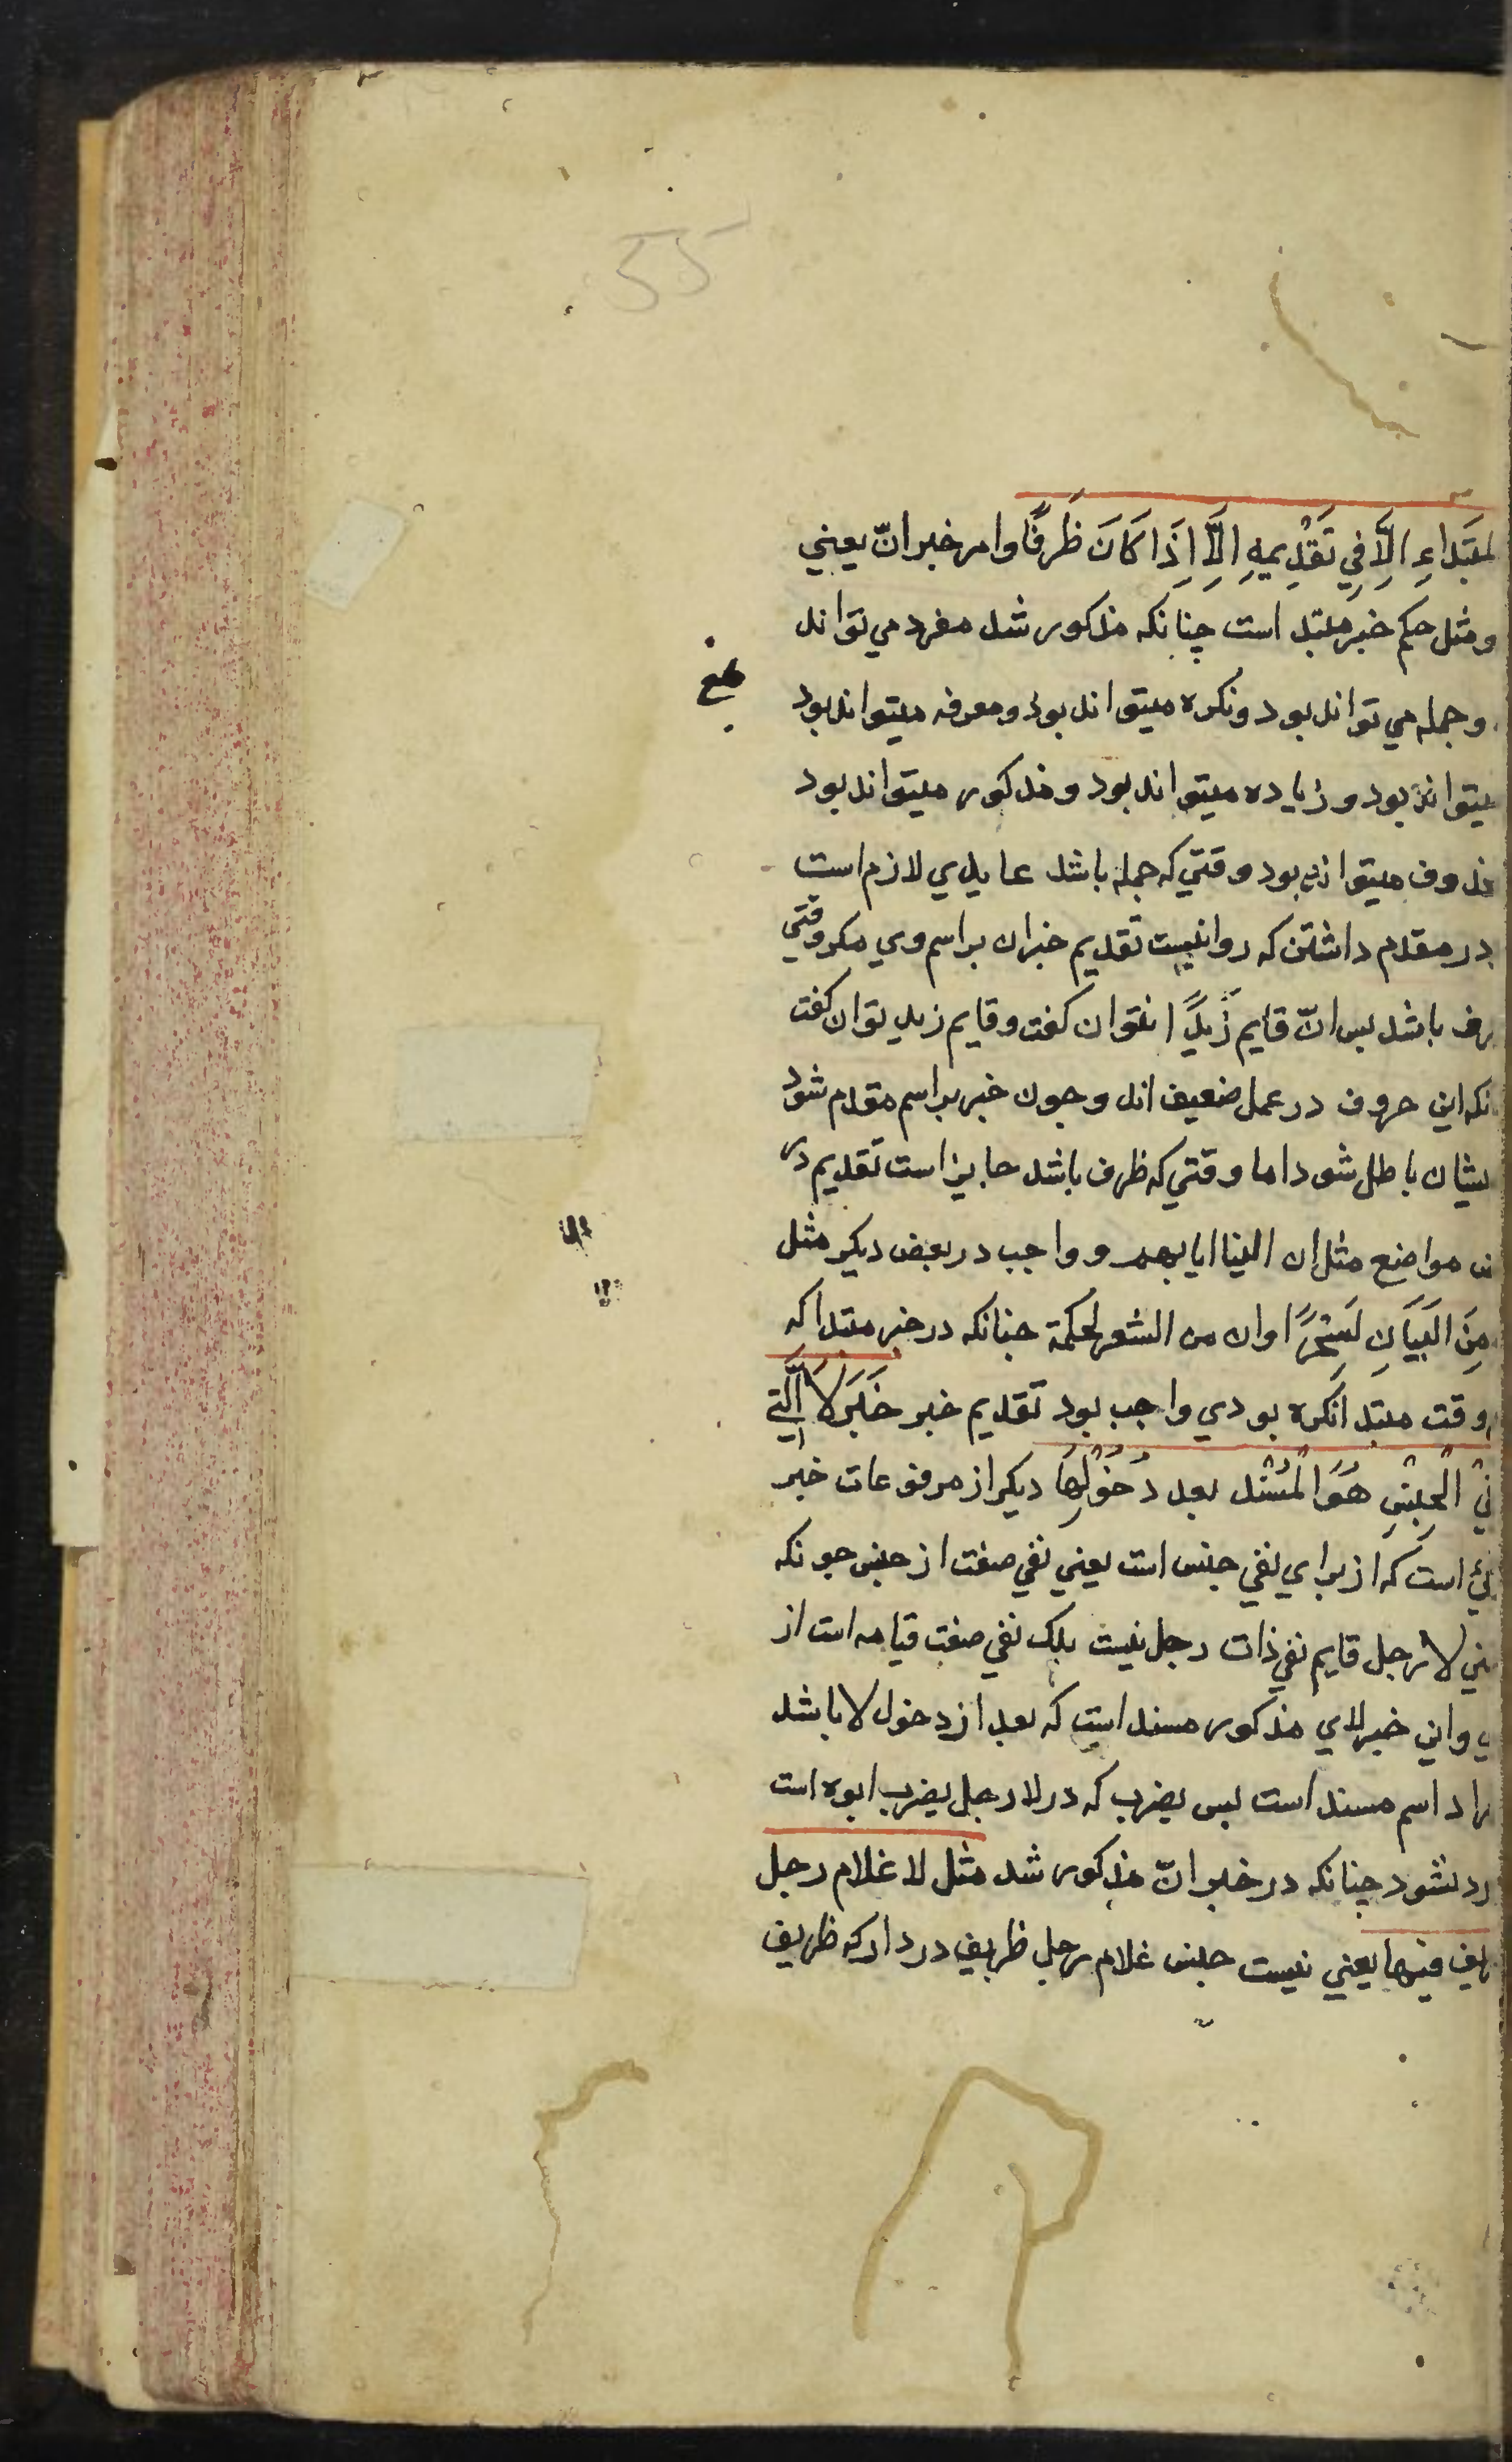 55
لمبَتَداءِ اِلَّا فِي تَقْدِيمِهِ اِلَّا اِذَا كَانَ ظَرفًا وامر خبر انّ يعني
ومثل حكم خبر مبتدا است چنانكه مذكور شد مفرد مي تواند
وجمله مي تواند بود ونكره ميتواند بود ومعرفه ميتواند بود
ميتواند بود وزياده ميتواند بود ومذكور ميتواند بود
ذوف ميتواند بود وقتي كه جمله باشد عايدي لازم است
در مقدم داشتن كه روا نيست تقديم خبر ان بر اسم وي مكر وقتي
رف باشد بس انّ قايم زيدًا نتوان كفت وقايم زيد توان كفت
انكه اين حروف در عمل ضعيف اند وجون خبر بر اسم مقدم شود
يشان باطل شود اما وقتي كه ظرف باشد جايز است تقديم در
مواضع مثل ان الينا ايابهم وواجب در بعض ديكر مثل
مِنَ البَيَانِ لَسِحْرًا وان من الشعر لحكمة جنانكه در خبر مبتدا كه
وقت مبتدا نكره بودي واجب بود تقديم خبر خَبَرَ لَا الَّتِي
في الجِنْسِ هُوَ المُسْنَد بعد دُخُوْلِهَا ديكر از مرفوعات خبر
ئي است كه از براي نفي جنس است يعني نفي صفت از جنس جونكه
ني لا رجل قايم نفي ذات رجل نيست بلك نفي صفت قيامه است از
ي واين خبر لاي مذكور مسند است كه بعد از دخول لا باشد
راد اسم مسند است بس يضرب كه در لا رجل يضرب ابوه است
رد نشود چنانكه در خبر انّ مذكور شد مثل لا غلام رجل
ريف فيها يعني نيست جنس غلام رجل ظريف در دار كه ظريف